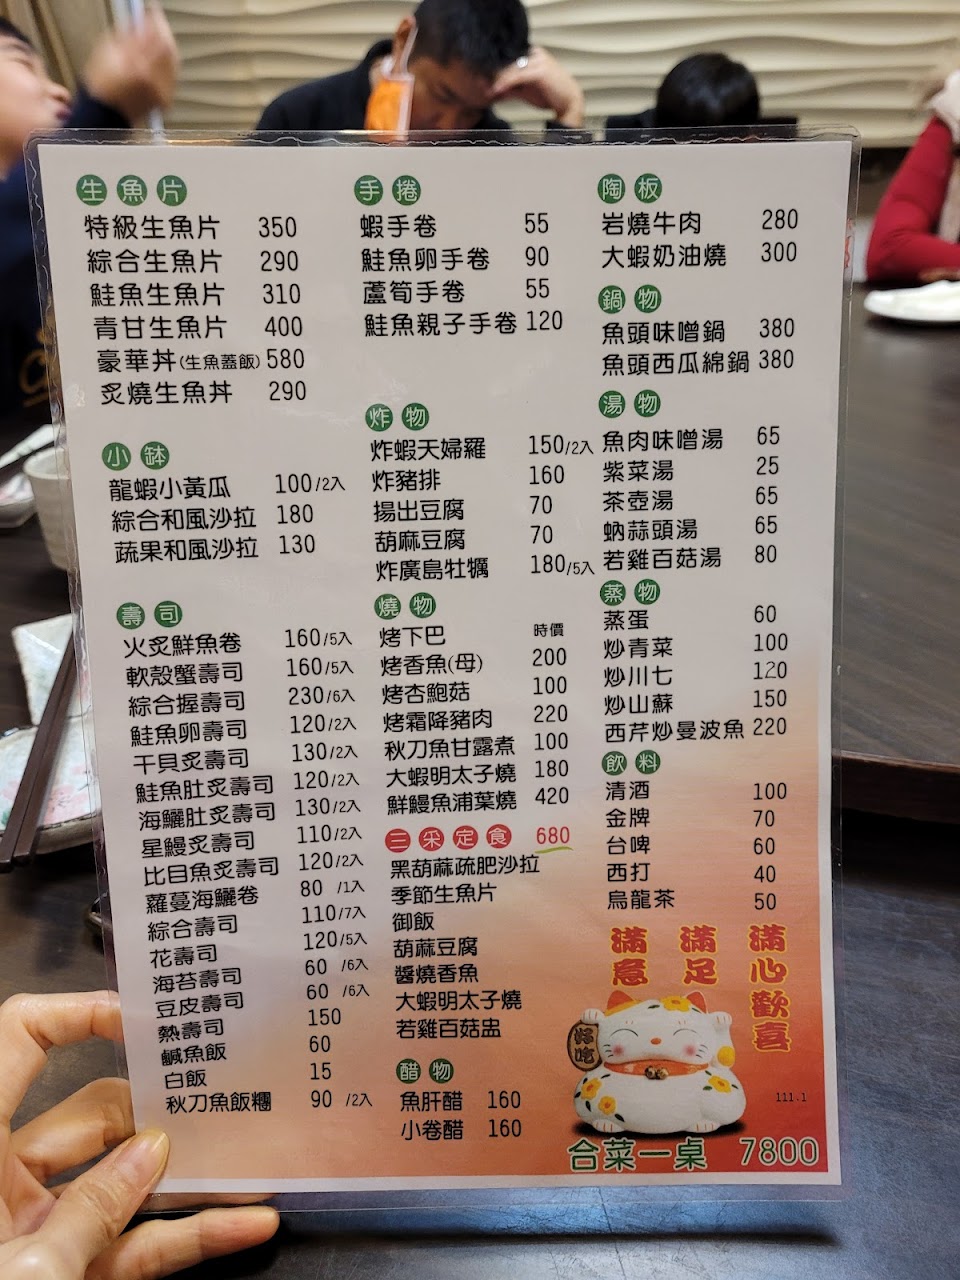 生魚片
特級生魚片 350
綜合生魚片 290
鮭魚生魚片 310
青甘生魚片 400
豪華丼(生魚蓋飯) 580
炙燒生魚丼 290
小缽
龍蝦小黃瓜 100/2入
綜合和風沙拉 180
蔬果和風沙拉 130
壽司
火炙鮮魚卷 160/5入
軟殼蟹壽司 160/5入
綜合握壽司 230/6入
鮭魚卵壽司 120/2入
干貝炙壽司 130/2入
鮭魚肚炙壽司 120/2入
海鱺肚炙壽司 130/2入
星鰻炙壽司 110/2入
比目魚炙壽司 120/2入
蘿蔓海鱺卷 80/1入
綜合壽司 110/7入
花壽司 120/5入
海苔壽司 60/6入
豆皮壽司 60/6入
熱壽司 150
鹹魚飯 60
白飯 15
秋刀魚飯糰 90/2入
手捲
蝦手卷 55
鮭魚卵手卷 90
蘆筍手卷 55
鮭魚親子手卷 120
炸物
炸蝦天婦羅 150/2入
炸豬排 160
揚出豆腐 70
胡麻豆腐 70
炸廣島牡蠣 180/5入
燒物
烤下巴 時價
烤香魚(母) 200
烤杏鮑菇 100
烤霜降豬肉 220
秋刀魚甘露煮 100
大蝦明太子燒 180
鮮鰻魚浦葉燒 420
三采定食 680
黑葫蔴疏肥沙拉
季節生魚片
御飯
葫蔴豆腐
醬燒香魚
大蝦明太子燒
若雞百菇盅
醋物
魚肝醋 160
小卷醋 160
陶板
岩燒牛肉 280
大蝦奶油燒 300
鍋物
魚頭味噌鍋 380
魚頭西瓜綿鍋 380
湯物
魚肉味噌湯 65
紫菜湯 25
茶壺湯 65
蚋蒜頭湯 65
若雞百菇湯 80
蒸物
蒸蛋 60
炒青菜 100
炒川七 120
炒山蘇 150
西芹炒曼波魚 220
飲料
清酒 100
金牌 70
台啤 60
西打 40
烏龍茶 50
滿意
滿足
滿心歡喜
好吃
111.1
合菜一桌 7800